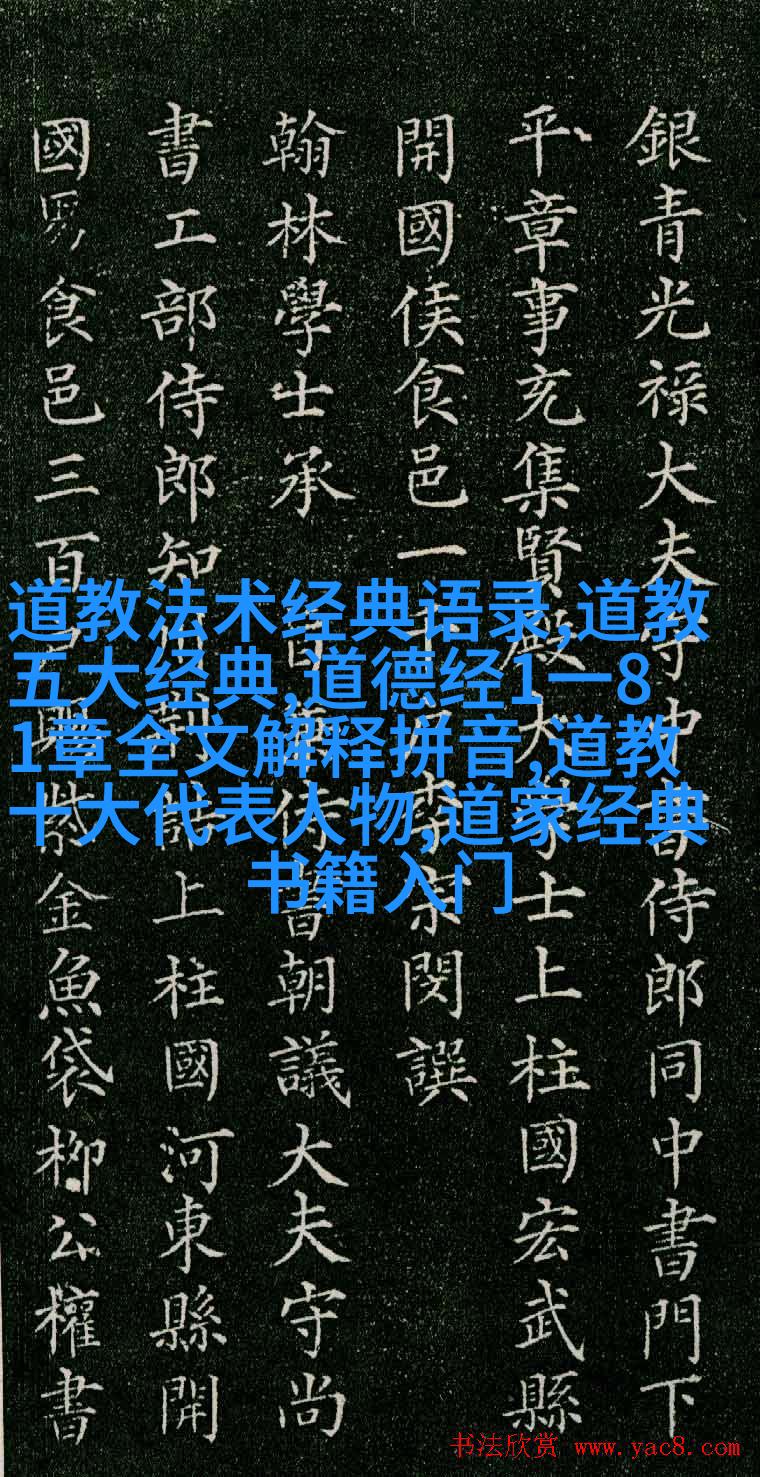 銀青光祿大夫守中書侍郎同中書門下
平章事充集賢殿大學士上柱國宏武縣
開國侯食邑一千李宗閔撰
翰林學士承旨侍書朝議大夫守尚
書工部侍郎知制上柱國河東縣開
國男食邑三百紫金魚袋柳公權書
道教法术经典语录,道教
五大经典,道德经1一8
1章全文解释拼音,道教
十大代表人物,道家经典
书籍入门
书法欣赏 www.yac8.com